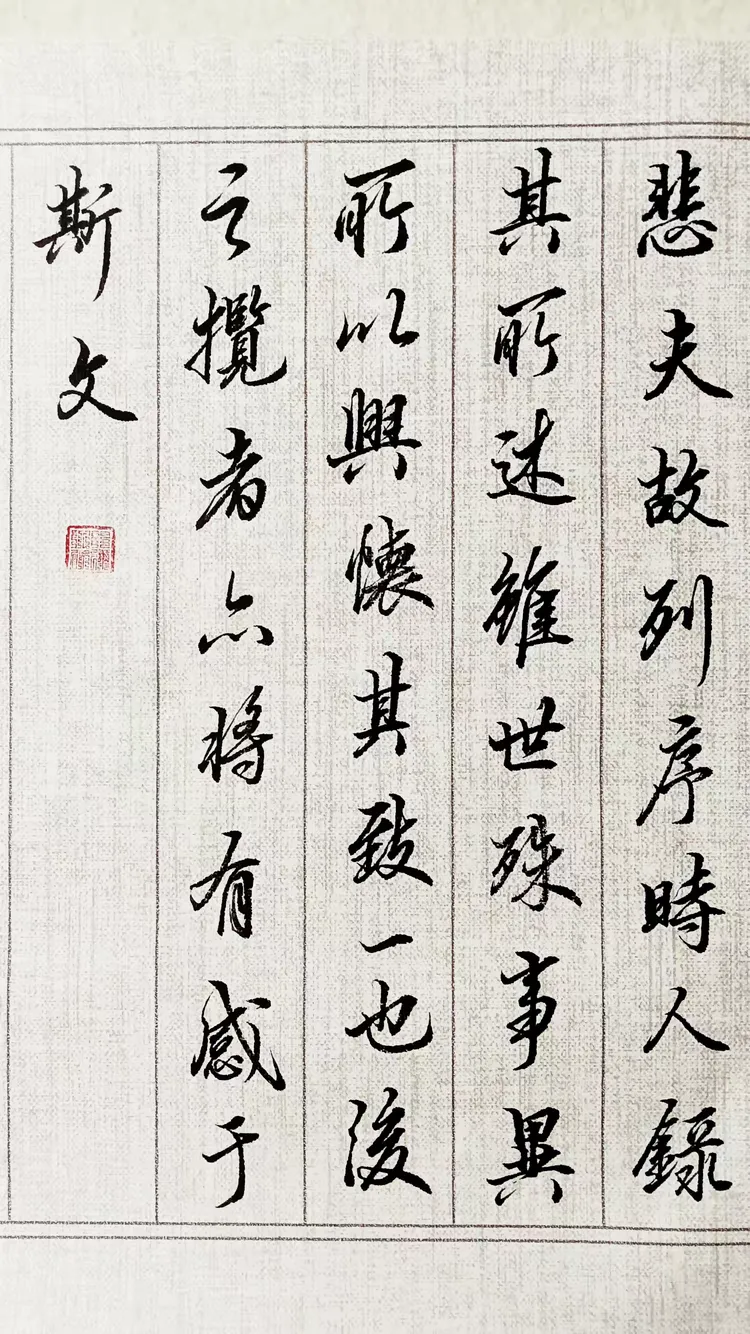 悲夫故列序時人錄
其所述雖世殊事異
所以興懷其致一也後
之攬者亦將有感于
斯文